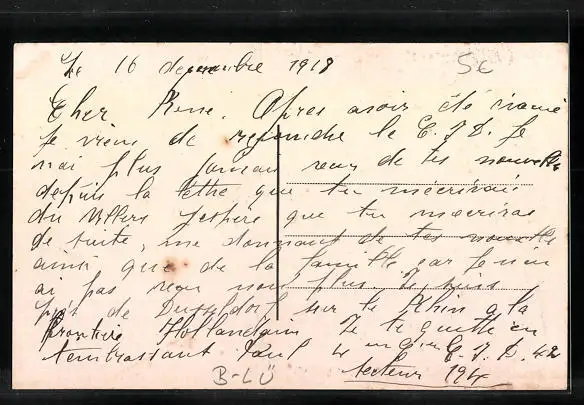 Le 16 decembre 1918 5c
Cher René. Apres avoir été
je viens de rejoindre le C. I. D. Je
nai plus jamais recu de tes nouvelle
depuis la lettre que tu mécrivais
du Villers Jespère que tu mecriras
de suite, me donnant de tes nouvelle
ainsi que de la famille car je nen
ai pas recu non plus. Je suis
près de Dusseldorf sur le Rhin a la
frontiere Hollandaise Je te quitte en
tembrassant Paul 4 C. I. D. 42
B-LÜ secteur 194